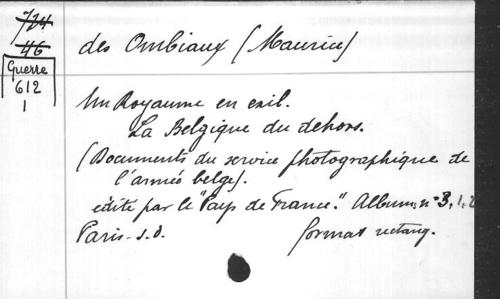 724
46
Guerre
612
1
des Ombiaux (Maurice)
Un Royaume en exil.
La Belgique du dehors.
(Documents du service photographique de
l'armée belge).
édité par le "Pays de France." Album n° 3, 1, 2
Paris - s.d. format rectang.